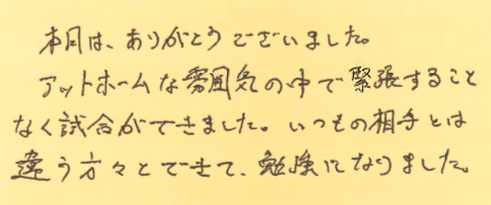 本日は、ありがとうございました。
アットホームな雰囲気の中で緊張すること
なく試合ができました。いつもの相手とは
違う方々とできて、勉強になりました。